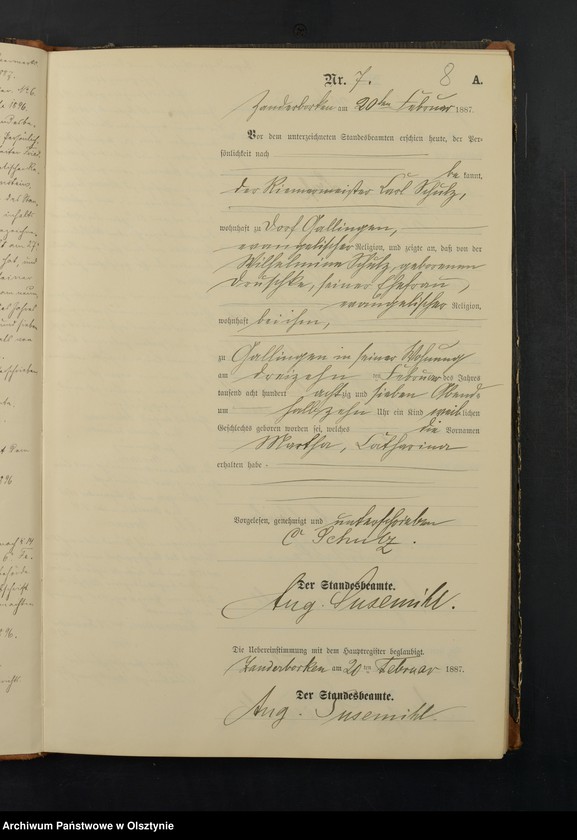 Nr. 7. 8 A.
Zanderborken am 20ten Februar 1887.
Vor dem unterzeichneten Standesbeamten erschien heute, der Per-
sönlichkeit nach
be kannt,
der Riemermeister Carl Schulz,
wohnhaft zu Dorf Gallingen,
evangelischer Religion, und zeigte an, daß von der
Wilhelmine Schulz, geborenen
Druschke, seiner Ehefrau,
evangelischer Religion,
wohnhaft bei ihm,
zu Gallingen in seiner Wohnung
am dreizehn Februar des Jahres
tausend acht hundert achtzig und sieben Abends
um halb zehn Uhr ein Kind weiblichen
Geschlechts geboren worden sei, welches die Vornamen
Martha, Catharina
erhalten habe
Vorgelesen, genehmigt und unterschrieben
C Schulz.
Der Standesbeamte.
Aug. Susemihl.
Die Uebereinstimmung mit dem Hauptregister beglaubigt.
Zanderborken am 20ten Februar 1887.
Der Standesbeamte.
Aug. Susemihl.
Archiwum Państwowe w Olsztynie